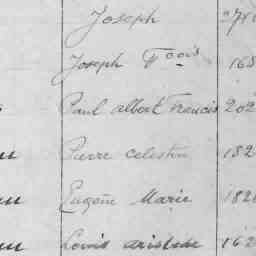 Joseph
Joseph Fcois 168
Paul albert Francis 202
Pierre celestin 182
Eugène Marie 182
Louis aristide 162